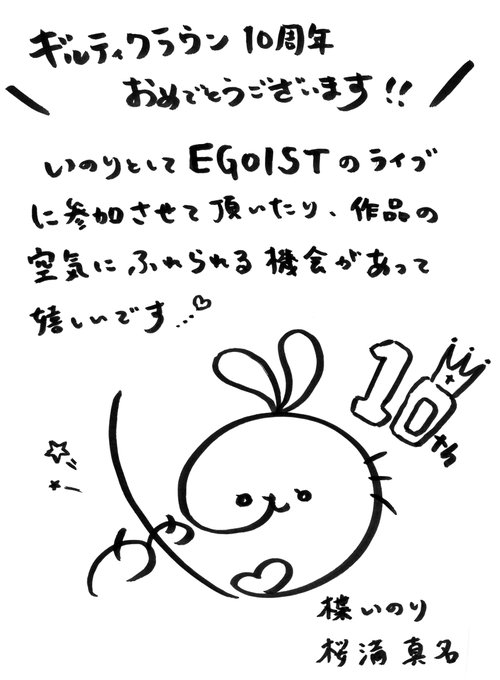 ギルティクラウン 10周年
おめでとうございます!!
いのりとして EGOIST のライブ
に参加させて頂いたり、作品の
空気にふれられる機会があって
嬉しいです…♡
10th
楪いのり
桜満 真名